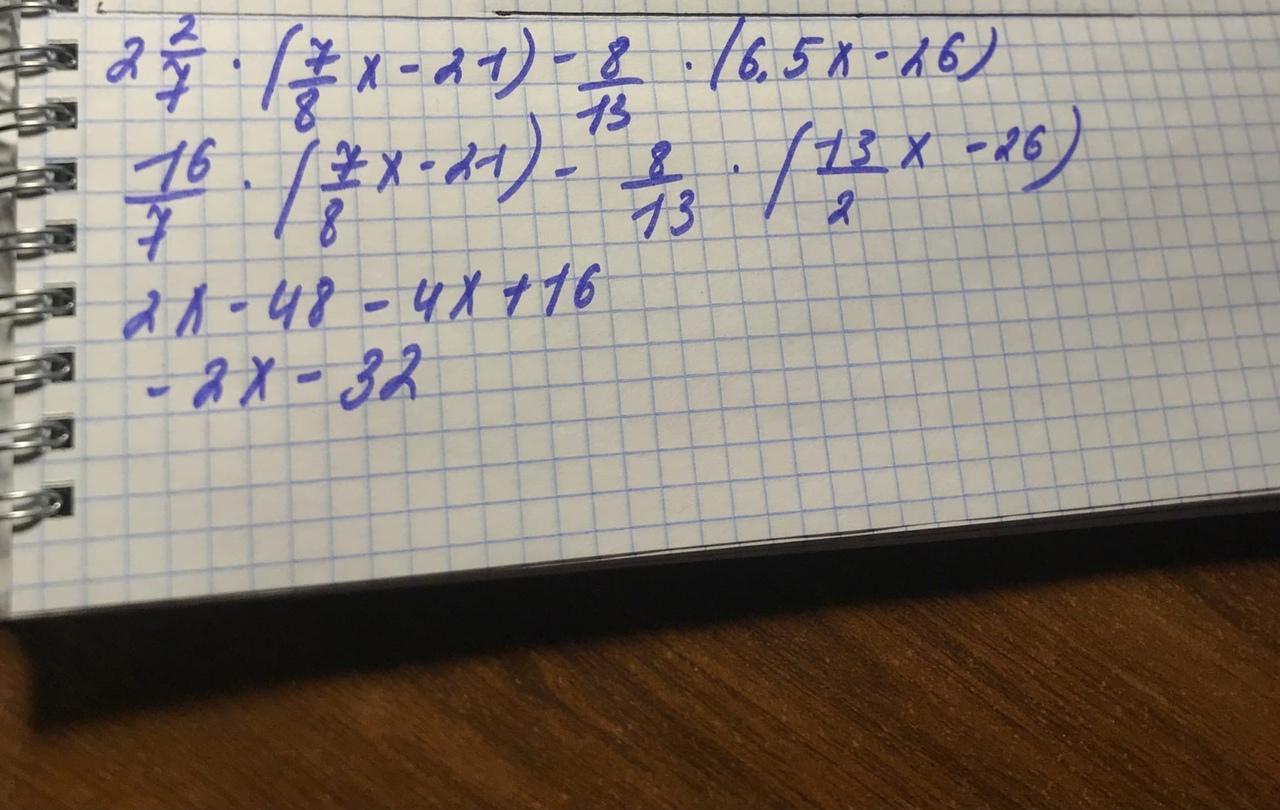 2 2/7 · (7/8 x - 21) - 8/13 · (6.5x - 26)
16/7 · (7/8 x - 21) - 8/13 · (13/2 x - 26)
2x - 48 - 4x + 16
- 2x - 32